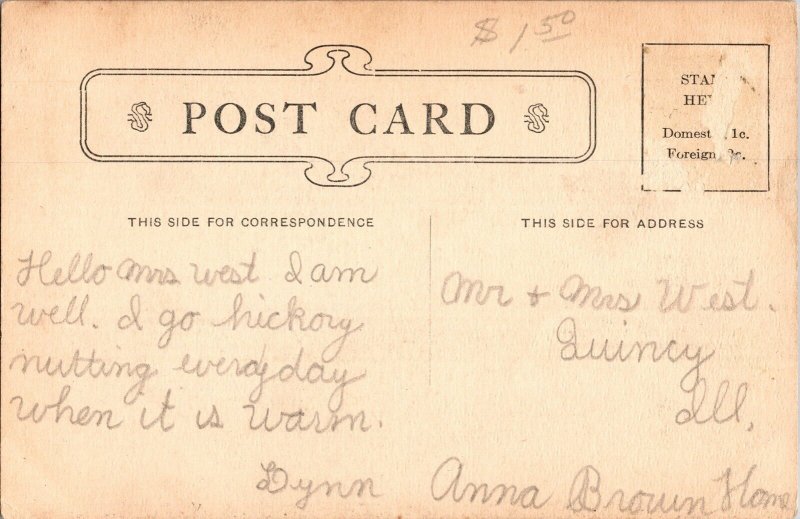 $1.50
POST CARD
STA
HE
Domest 1c.
Foreign 2c.
THIS SIDE FOR CORRESPONDENCE
THIS SIDE FOR ADDRESS
Hello Mrs West I am
well. I go hickory
nutting everyday
when it is warm.
Lynn
Mr + Mrs West.
Quincy
Ill.
Anna Brown Home